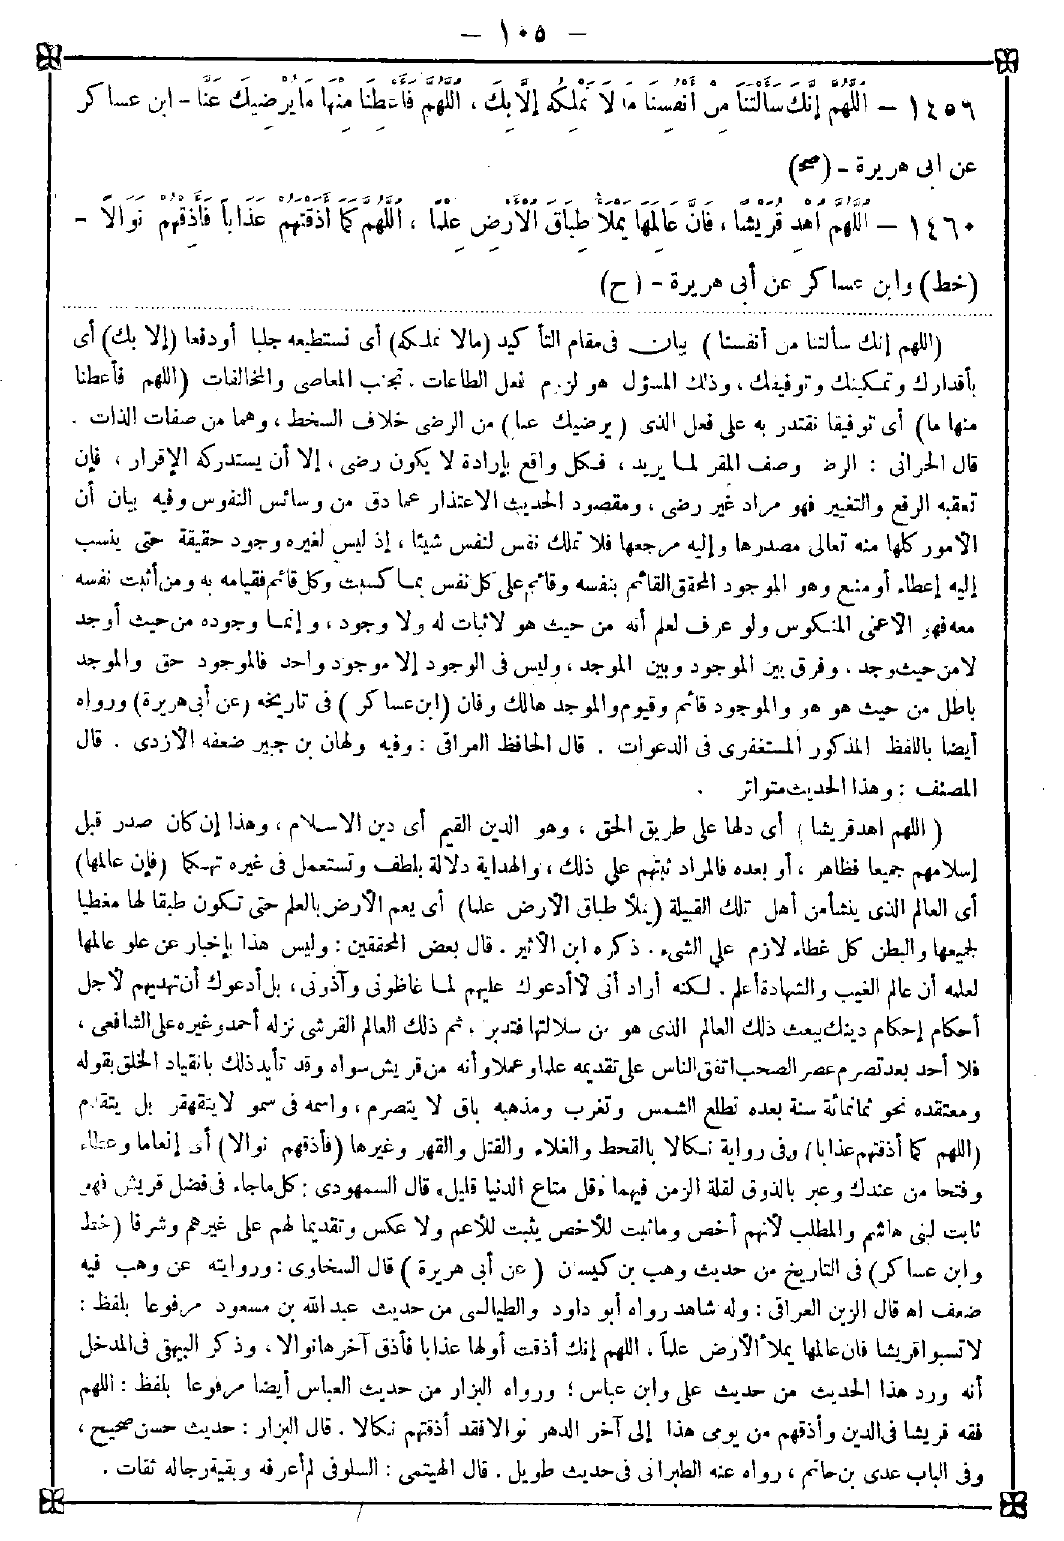 - ١٠٥ -
١٤٥٦ - اَللّٰهُمَّ إِنَّكَ سَأَلْتَنَا مِنْ أَنْفُسِنَا مَا لَا نَمْلِكُهُ إِلَّا بِكَ ، اَللّٰهُمَّ فَأَعْطِنَا مِنْهَا مَا يُرْضِيكَ عَنَّا - ابن عساكر
عن ابى هريرة - (صح)
١٤٦٠ - اَللّٰهُمَّ اهْدِ قُرَيْشًا ، فَانَّ عَالِمَهَا يَمْلَأُ طِبَاقَ الْأَرْضِ عِلْمًا ، اَللّٰهُمَّ كَمَا أَذَقْتَهُمْ عَذَابًا فَأَذِقْهُمْ نَوَالًا -
(خط) وابن عساكر عن أبى هريرة - (ح)
(اللهم إنك سألتنا من أنفسنا) بيان فى مقام التأكيد (مالا نملكه) أى نستطيعه جلبا أودفعا (إلا بك) أى
بأقدارك وتمكينك وتوفيقك ، وذلك المسؤل هو لزوم فعل الطاعات . تجنب المعاصى والمخالفات (اللهم فأعطنا
منها ما) أى توفيقا نقتدر به على فعل الذى (يرضيك عنا) من الرضى خلاف السخط ، وهما من صفات الذات .
قال الحرانى : الرضى وصف المقر لما يريد ، فكل واقع بإرادة لا يكون رضى ، إلا أن يستدركه الإقرار ، فإن
تعقبه الرفع والتغيير فهو مراد غير رضى ، ومقصود الحديث الاعتذار عما دق من وسائس النفوس وفيه بيان أن
الأمور كلها منه تعالى مصدرها وإليه مرجعها فلا تملك نفس لنفس شيئا ، إذ ليس لغيره وجود حقيقة حتى ينسب
إليه إعطاء أو منع وهو الموجود المحقق القائم بنفسه وقائم على كل نفس بما كسبت وكل قائم فقيامه به ومن أثبت نفسه
معه فهو الأعمى المنكوس ولو عرف لعلم أنه من حيث هو لاثبات له ولا وجود ، وإنما وجوده من حيث أوجد
لامن حيث وجد . وفرق بين الموجود وبين الموجد ، وليس فى الوجود إلا موجود واحد فالموجود حق والموجد
باطل من حيث هو هو والموجود قائم وقيوم والموجد هالك وفان (ابن عساكر) فى تاريخه (عن أبى هريرة) ورواه
أيضا باللفظ المذكور المستغفرى فى الدعوات . قال الحافظ العراقى : وفيه ولهان بن جبير ضعفه الأزدى . قال
المصنف : وهذا الحديث متواتر .
(اللهم اهد قريشا) أى دلها على طريق الحق ، وهو الدين القيم أى دين الاسلام ، وهذا إن كان صدر قبل
إسلامهم جميعا فظاهر ، أو بعده فالمراد ثبتهم على ذلك ، والهداية دلالة بلطف وتستعمل فى غيره تهكما (فإن عالمها)
أى العالم الذى ينشأ من أهل تلك القبيلة (يملأ طباق الأرض علما) أى يعم الأرض بالعلم حتى تكون طبقا لها مغطيا
لجميعها والبطن كل غطاء لازم على الشىء . ذكره ابن الأثير . قال بعض المحققين : وليس هذا بإخبار عن علو عالمها
لعلمه أن عالم الغيب والشهادة أعلم . لكنه أراد أنى لا أدعوك عليهم لما غاظونى وآذونى ، بل أدعوك أن تهديهم لأجل
أحكام إحكام دينك ببعث ذلك العالم الذى هو من سلالتها فتدبر ، ثم ذلك العالم القرشى نزله أحمد وغيره على الشافعى ،
فلا أحد بعد تصرم عصر الصحب اتفق الناس على تقديمه علما وعملا وأنه من قريش سواه وقد تأيد ذلك بانقياد الخلق بقوله
ومعتقده نحو ثمانمائة سنة بعده تطلع الشمس وتغرب ومذهبه باق لا يتصرم ، واسمه فى سمو لا يتقهقر بل يتقدم
(اللهم كما أذقتهم عذابا) وفى رواية نكالا بالقحط والغلاء والقتل والقهر وغيرها (فأذقهم نوالا) أى إنعاما وعطاء
وفتحا من عندك وعبر بالذوق لقلة الزمن فيهما «قل متاع الدنيا قليل» قال السمهودى : كل ماجاء فى فضل قريش فهو
ثابت لبنى هاشم والمطلب لأنهم أخص وماثبت للأخص يثبت للأعم ولا عكس وتقديما لهم على غيرهم وشرفا (خط
وابن عساكر) فى التاريخ من حديث وهب بن كيسان (عن أبى هريرة) قال السخاوى : وروايته عن وهب فيه
ضعف اه قال الزين العراقى : وله شاهد رواه أبو داود والطيالسى من حديث عبد الله بن مسعود مرفوعا بلفظ :
لا تسبوا قريشا فان عالمها يملأ الأرض علماً ، اللهم إنك أذقت أولها عذابا فأذق آخرها نوالا ، وذكر البيهقى فى المدخل
أنه ورد هذا الحديث من حديث على وابن عباس ؛ ورواه البزار من حديث العباس أيضا مرفوعا بلفظ : اللهم
فقه قريشا فى الدين وأذقهم من يومى هذا إلى آخر الدهر نوالا فقد أذقتهم نكالا . قال البزار : حديث حسن صحيح ،
وفى الباب عدى بن حاتم ، رواه عنه الطبرانى فى حديث طويل . قال الهيتمى : السلوفى لم أعرفه وبقية رجاله ثقات .